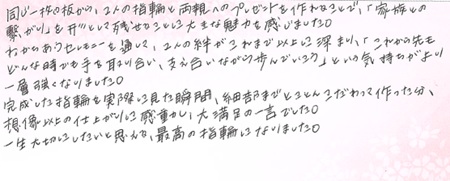 同じ一枚の板から、2人の指輪と両親へのプレゼントを作れることで、「家族との
繋がり」を形として残せることに大きな魅力を感じました。
わかちあうセレモニーを通して、2人の絆がこれまで以上に深まり、「これから先も
どんな時でも手を取り合い、支え合いながら歩んでいこう」という気持ちがより
一層強くなりました。
完成した指輪を実際に見た瞬間、細部までとことんこだわって作った分、
想像以上の仕上がりに感動し、大満足の一言でした。
一生大切にしたいと思える、最高の指輪になりました。